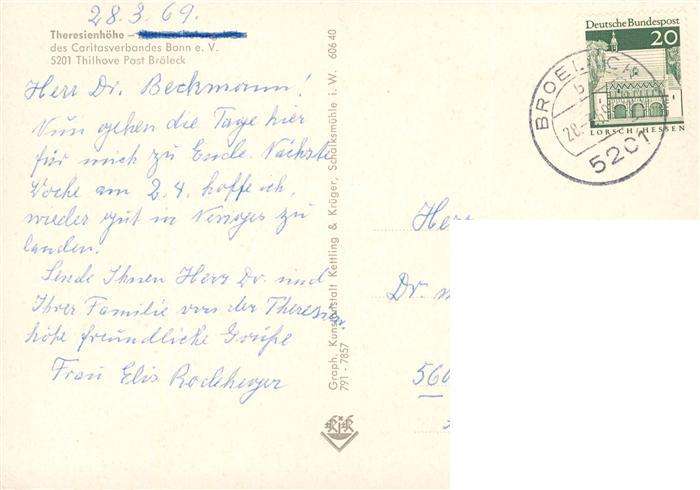 28.3.69.
Theresienhöhe –
des Caritasverbandes Bonn e. V.
5201 Thilhove Post Bröleck
Herr Dr. Beckmann!
Nun gehen die Tage hier
für mich zu Ende. Nächste
Woche am 2.4. hoffe ich,
wieder gut in zu
landen.
Sende Ihnen Herr Dr. und
Ihrer Familie von der Theresien
höhe freundliche Grüße
Frau Elis
Graph. Kunstanstalt Kettling & Krüger, Schalksmühle i. W. 606 40
791 - 7857
Deutsche Bundespost
20
LORSCH/HESSEN
5201
Herr
Dr. m
560